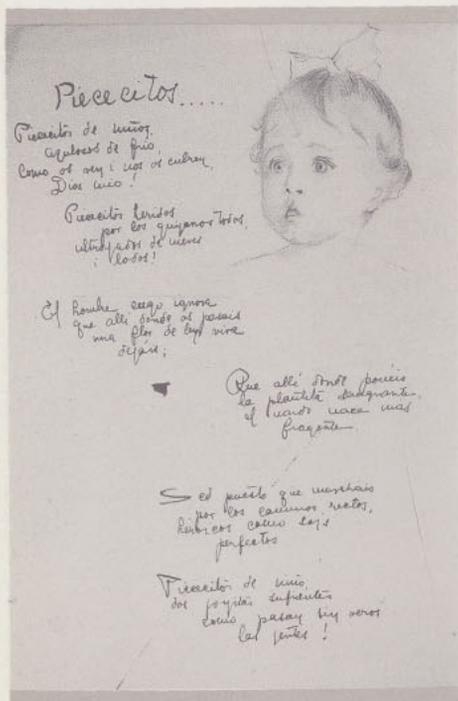 Piececitos.....
Piececitos de niños,
azulosos de frío,
como os ven i nos os cubren,
Dios mío!
Piececitos heridos
por los guijarros todos,
ultrajados de nieves
i lodos!
El hombre ciego ignora
que allí donde os posais
una flor de luz viva
dejáis;
Que allí donde poneis
la plantita sangrante,
el nardo nace mas
fragante.
Sed puesto que marchais
por los caminos rectos,
heroicos como sois
perfectos
Piececitos de niño,
dos joyitas sufrientes
como pasan sin veros
las gentes!